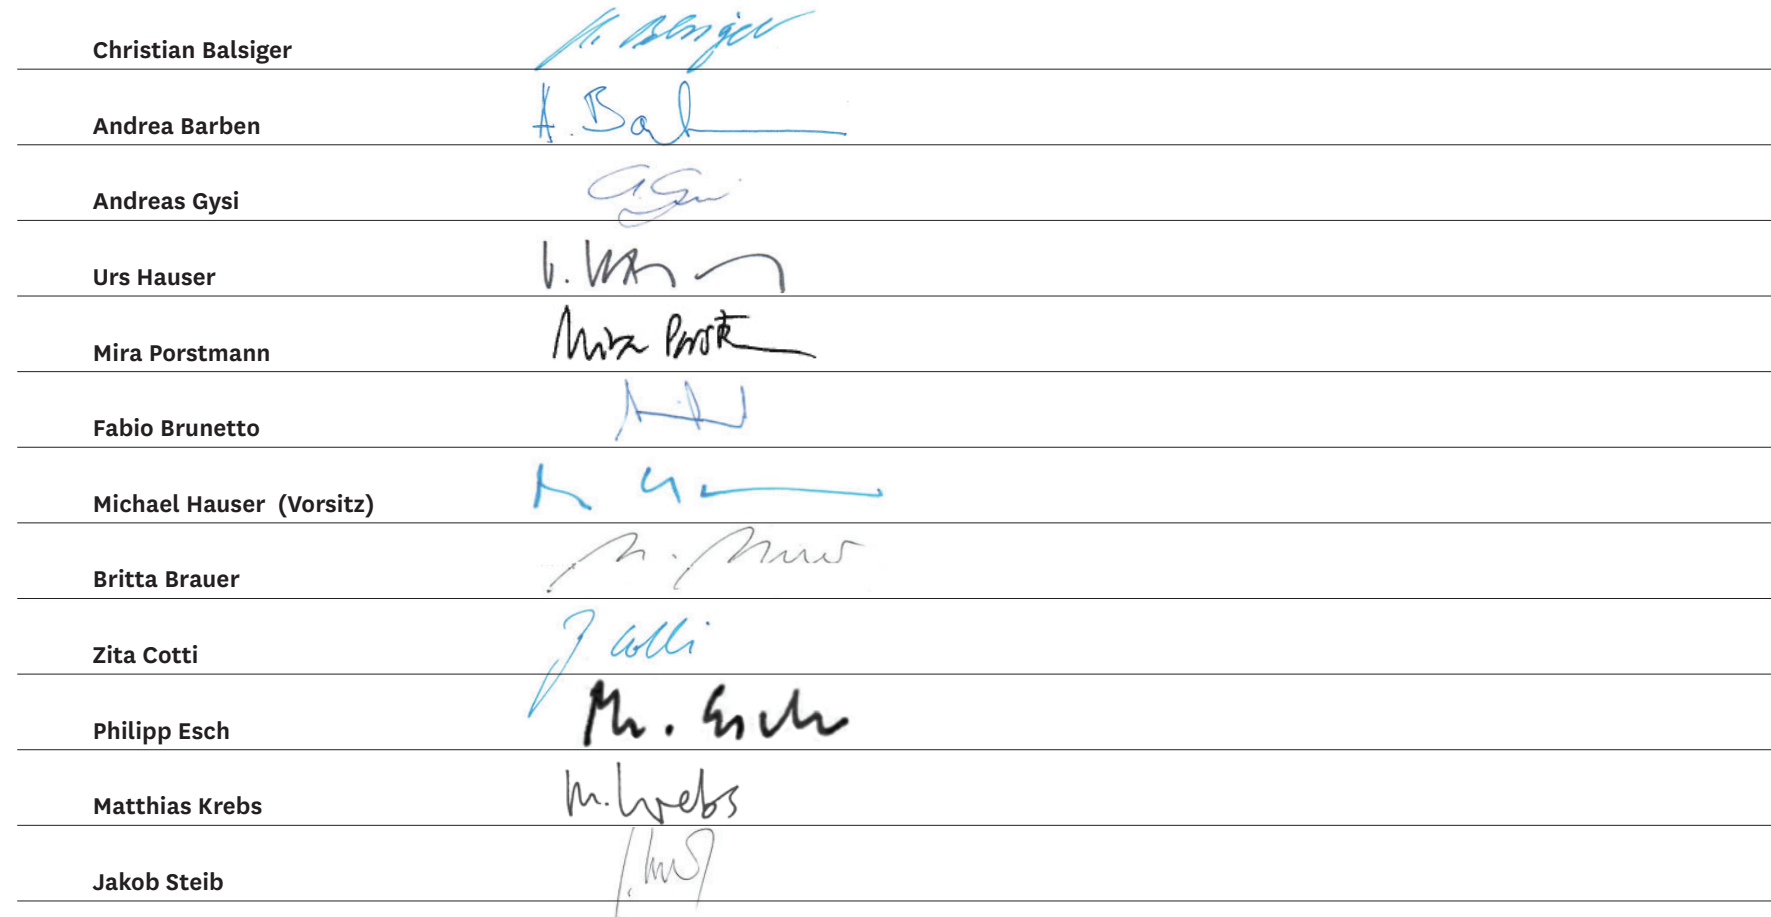 Christian Balsiger
Andrea Barben A. Ba
Andreas Gysi
Urs Hauser
Mira Porstmann Mira Porst
Fabio Brunetto
Michael Hauser (Vorsitz)
Britta Brauer
Zita Cotti Z Cotti
Philipp Esch Ph. Esch
Matthias Krebs M. Krebs
Jakob Steib